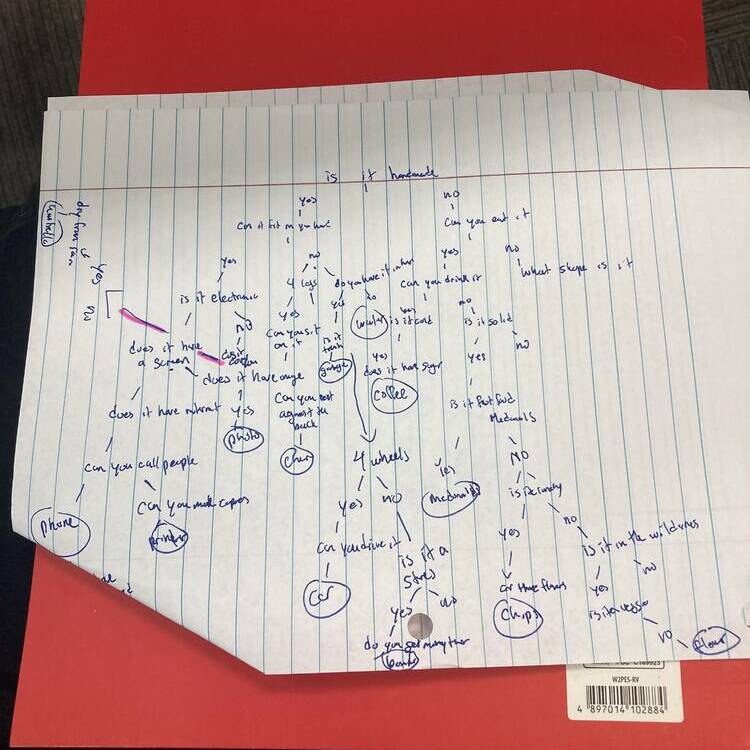 is it handmade
yes
no
can it fit in your hand
Can you eat it
yes
no
yes
no
is it electronic
4 legs
do you have it in
can you drink it
What shape is it
yes
no
yes
yes
no
yes
no
does it have
a screen
no
can you sit
on it
is it
trash
water
is it cold
is it solid
no
does it have image
garage
yes
does it have sugar
yes
coffee
does it have internet
yes
photo
Can you rest
against the
back
is it fast food
Mcdonalds
can you call people
chair
4 wheels
yes
NO
yes
no
mcdonalds
is it candy
phone
can you make copies
printer
can you drive it
is it a
store
yes
no
is it in the wilderness
car
yes
no
yes
no
chips
is it a
do you get money there
bank
no
flower
umbrella
dry from rain
yes
no
W2PES-RV
4 897014 102884